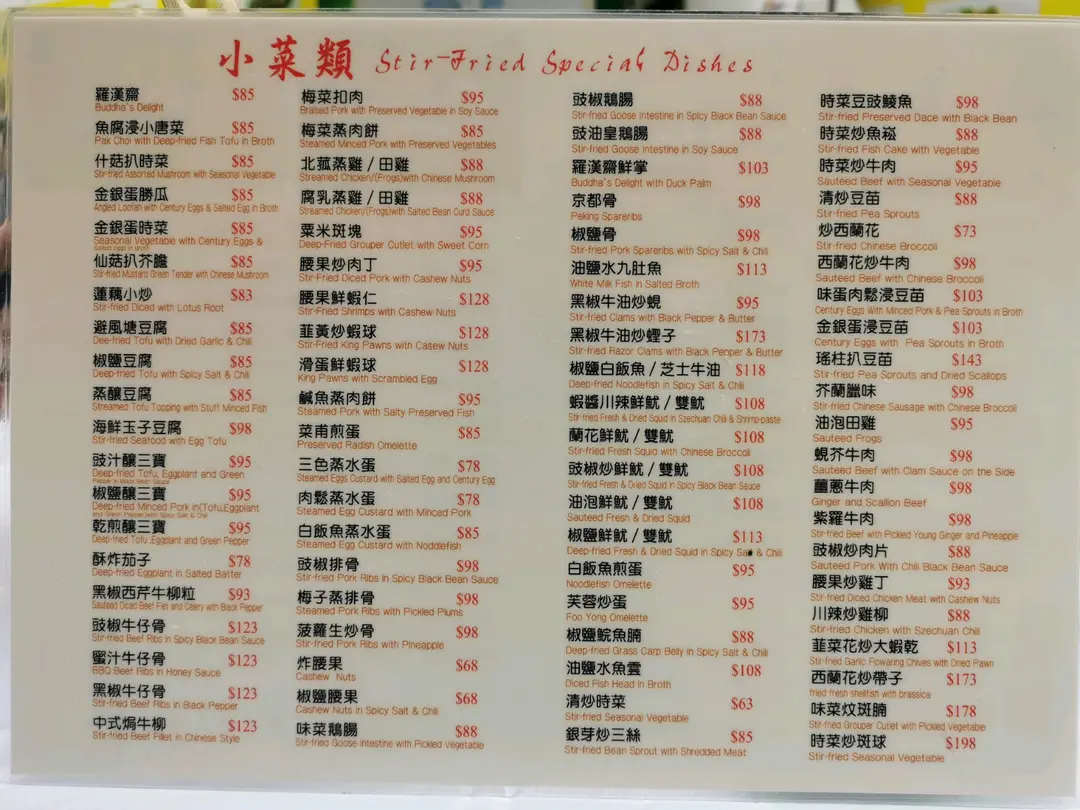 小菜類 Stir-Fried Special Dishes
羅漢齋 $85
Buddha's Delight
魚腐浸小唐菜 $85
Pak Choi with Deep-fried Fish Tofu in Broth
什菇扒時菜 $85
Stir-fried Assorted Mushroom with Seasonal Vegetable
金銀蛋勝瓜 $85
Angled Loofah with Century Eggs & Salted Egg in Broth
金銀蛋時菜 $85
Seasonal Vegetable with Century Eggs &
Salted Eggs in Broth
仙菇扒芥膽 $85
Stir-fried Mustard Green Tender with Chinese Mushroom
蓮藕小炒 $83
Stir-fried Diced with Lotus Root
避風塘豆腐 $85
Dee-fried Tofu with Dried Garlic & Chili
椒鹽豆腐 $85
Deep-fried Tofu with Spicy Salt & Chili
蒸釀豆腐 $85
Streamed Tofu Topping with Stuff Minced Fish
海鮮玉子豆腐 $98
Stir-fried Seafood with Egg Tofu
豉汁釀三寶 $95
Deep-fried Tofu, Eggplant and Green
Pepper in Black Bean Sauce
椒鹽釀三寶 $95
Deep-fried Minced Pork in(Tofu,Eggplant
and Green Pepper)with Spicy Salt & Chili
乾煎釀三寶 $95
Deep-fried Tofu ,Eggplant and Green Pepper
酥炸茄子 $78
Deep-fried Eggplant in Salted Batter
黑椒西芹牛柳粒 $93
Sauteed Diced Beef Filet and Celery with Black Pepper
豉椒牛仔骨 $123
Stir-fried Beef Ribs in Spicy Black Bean Sauce
蜜汁牛仔骨 $123
BBQ Beef Ribs in Honey Sauce
黑椒牛仔骨 $123
Stir-fried Beef Ribs in Black Pepper
中式焗牛柳 $123
Stir-fried Beef Fillet in Chinese Style
梅菜扣肉 $95
Braised Pork with Preserved Vegetable in Soy Sauce
梅菜蒸肉餅 $85
Steamed Minced Pork with Preserved Vegetables
北菰蒸雞 / 田雞 $88
Streamed Chicken/(Frogs)with Chinese Mushroom
腐乳蒸雞 / 田雞 $88
Streamed Chicken/(Frogs)with Salted Bean Curd Sauce
粟米斑塊 $95
Deep-Fried Grouper Cutlet with Sweet Corn
腰果炒肉丁 $95
Stir-Fried Diced Pork with Cashew Nuts
腰果鮮蝦仁 $128
Stir-Fried Shrimps with Cashew Nuts
韮黃炒蝦球 $128
Stir-Fried King Pawns with Casew Nuts
滑蛋鮮蝦球 $128
King Pawns with Scrambled Egg
鹹魚蒸肉餅 $95
Steamed Pork with Salty Preserved Fish
菜甫煎蛋 $85
Preserved Radish Omelette
三色蒸水蛋 $78
Steamed Eggs Custard with Salted Egg and Century Egg
肉鬆蒸水蛋 $78
Steamed Egg Custard with Minced Pork
白飯魚蒸水蛋 $85
Steamed Egg Custard with Noddlefish
豉椒排骨 $98
Stir-fried Pork Ribs in Spicy Black Bean Sauce
梅子蒸排骨 $98
Steamed Pork Ribs with Pickled Plums
菠蘿生炒骨 $98
Stir-fried Pork Ribs with Pineapple
炸腰果 $68
Cashew Nuts
椒鹽腰果 $68
Cashew Nuts in Spicy Salt & Chili
味菜鵝腸 $88
Stir-fried Goose Intestine with Pickled Vegetable
豉椒鵝腸 $88
Stir-fried Goose Intestine in Spicy Black Bean Sauce
豉油皇鵝腸 $88
Stir-fried Goose Intestine in Soy Sauce
羅漢齋鮮掌 $103
Buddha's Delight with Duck Palm
京都骨 $98
Peking Spareribs
椒鹽骨 $98
Stir-fried Pork Spareribs with Spicy Salt & Chili
油鹽水九肚魚 $113
White Milk Fish in Salted Broth
黑椒牛油炒蜆 $95
Stir-fried Clams with Black Pepper & Butter
黑椒牛油炒蟶子 $173
Stir-fried Razor Clams with Black Penper & Butter
椒鹽白飯魚 / 芝士牛油 $118
Deep-fried Noodlefish in Spicy Salt & Chili
蝦醬川辣鮮魷 / 雙魷 $108
Stir-fried Fresh & Dried Squid in Szechuan Chili & Shrimp-paste
蘭花鮮魷 / 雙魷 $108
Stir-fried Fresh Squid with Chinese Broccoli
豉椒炒鮮魷 / 雙魷 $108
Stir-fried Fresh & Dried Squid in Spicy Black Bean Sauce
油泡鮮魷 / 雙魷 $108
Sauteed Fresh & Dried Squid
椒鹽鮮魷 / 雙魷 $113
Deep-fried Fresh & Dried Squid in Spicy Salt & Chili
白飯魚煎蛋 $95
Noodlefish Omelette
芙蓉炒蛋 $95
Foo Yong Omelette
椒鹽鯇魚腩 $88
Deep-fried Grass Carp Belly in Spicy Salt & Chili
油鹽水魚雲 $108
Diced Fish Head in Broth
清炒時菜 $63
Stir-fried Seasonal Vegetable
銀芽炒三絲 $85
Stir-fried Bean Sprout with Shredded Meat
時菜豆豉鯪魚 $98
Stir-fried Preserved Dace with Black Bean
時菜炒魚崧 $88
Stir-fried Fish Cake with Vegetable
時菜炒牛肉 $95
Sauteed Beef with Seasonal Vegetable
清炒豆苗 $88
Stir-fried Pea Sprouts
炒西蘭花 $73
Stir-fried Chinese Broccoli
西蘭花炒牛肉 $98
Sauteed Beef with Chinese Broccoli
味蛋肉鬆浸豆苗 $103
Century Eggs With Minced Pork & Pea Sprouts in Broth
金銀蛋浸豆苗 $103
Century Eggs with Pea Sprouts in Broth
瑤柱扒豆苗 $143
Stir-fried Pea Sprouts and Dried Scallops
芥蘭臘味 $98
Stir-fried Chinese Sausage with Chinese Broccoli
油泡田雞 $95
Sauteed Frogs
蜆芥牛肉 $98
Sauteed Beef with Clam Sauce on the Side
薑蔥牛肉 $98
Ginger and Scallion Beef
紫羅牛肉 $98
Stir-fried Beef with Pickled Young Ginger and Pineapple
豉椒炒肉片 $88
Sauteed Pork With Chili Black Bean Sauce
腰果炒雞丁 $93
Stir-fried Diced Chicken Meat with Cashew Nuts
川辣炒雞柳 $88
Stir-fried Chicken with Szechuan Chili
韮菜花炒大蝦乾 $113
Stir-fried Garlic Flowaring Chives with Dried Pawn
西蘭花炒帶子 $173
fried fresh shellfish with brassica
味菜炆斑腩 $178
Stir-fried Grouper Cutlet with Pickled Vegetable
時菜炒斑球 $198
Stir-fried Seasonal Vegetable